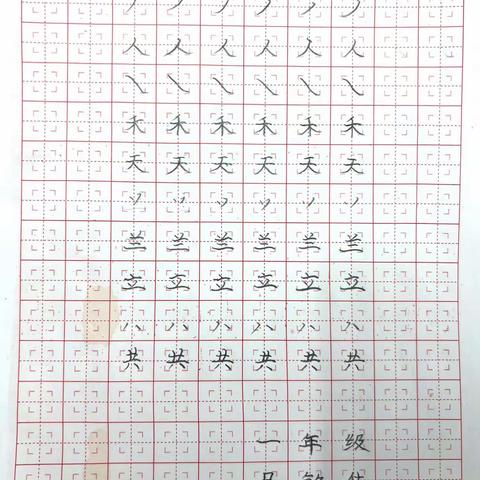 丿 丿 丿 丿 丿 丿
人 人 人 人 人 人
㇏ ㇏ ㇏ ㇏ ㇏ ㇏
禾 禾 禾 禾 禾 禾
天 天 天 天 天 天
丷 丷 丷 丷 丷 丷
兰 兰 兰 兰 兰 兰
立 立 立 立 立 立
八 八 八 八 八 八
共 共 共 共 共 共
一 年 级